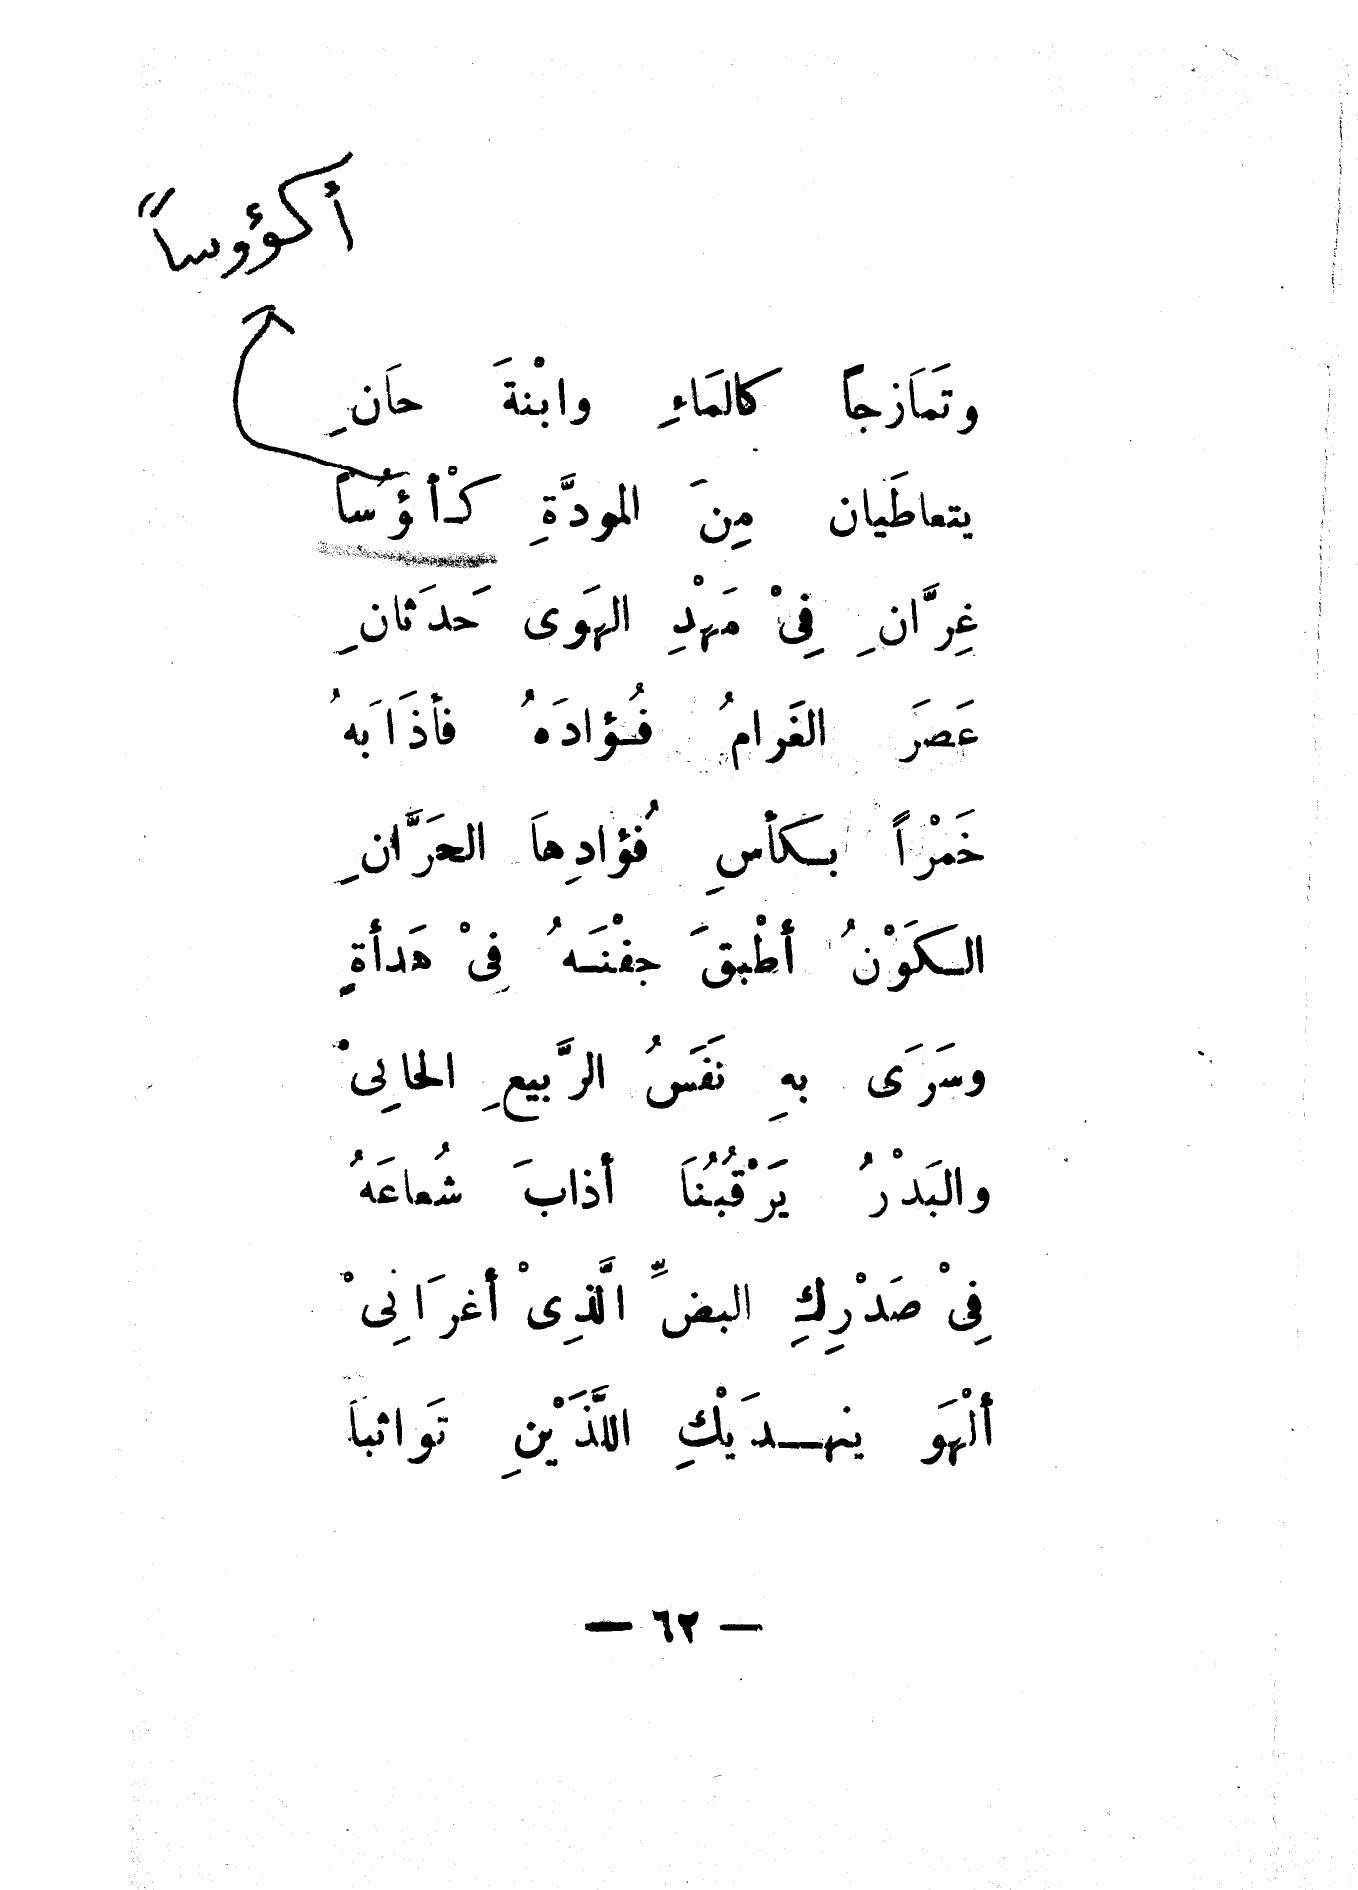 أكؤوساً
وتَمَازجاً كالمَاءِ وابْنةَ حَانِ
يتعاطَيان مِنَ المودَّةِ كْأؤُساً
غِرَّانِ فِىْ مَهْدِ الهَوى حَدَثانِ
عَصَرَ الغَرامُ فُـؤادَهُ فأذَابَهُ
خَمْراً بـكأسِ فُؤادِهاَ الحَرَّانِ
الـكَوْنُ أطْبقَ جفْنَـهُ فِىْ هَدأةٍ
وسَرَى بهِ نَفَسُ الرَّبيعِ الحانِىْ
والبَدْرُ يَرْقُبُنَا أذابَ شُعاعَهُ
فِىْ صَدْرِكِ البضِّ الَّذِىْ أغرَانِىْ
ألْهَو ينهـــدَيْكِ اللَّذَيْنِ تَواثبا
— ٦٢ —